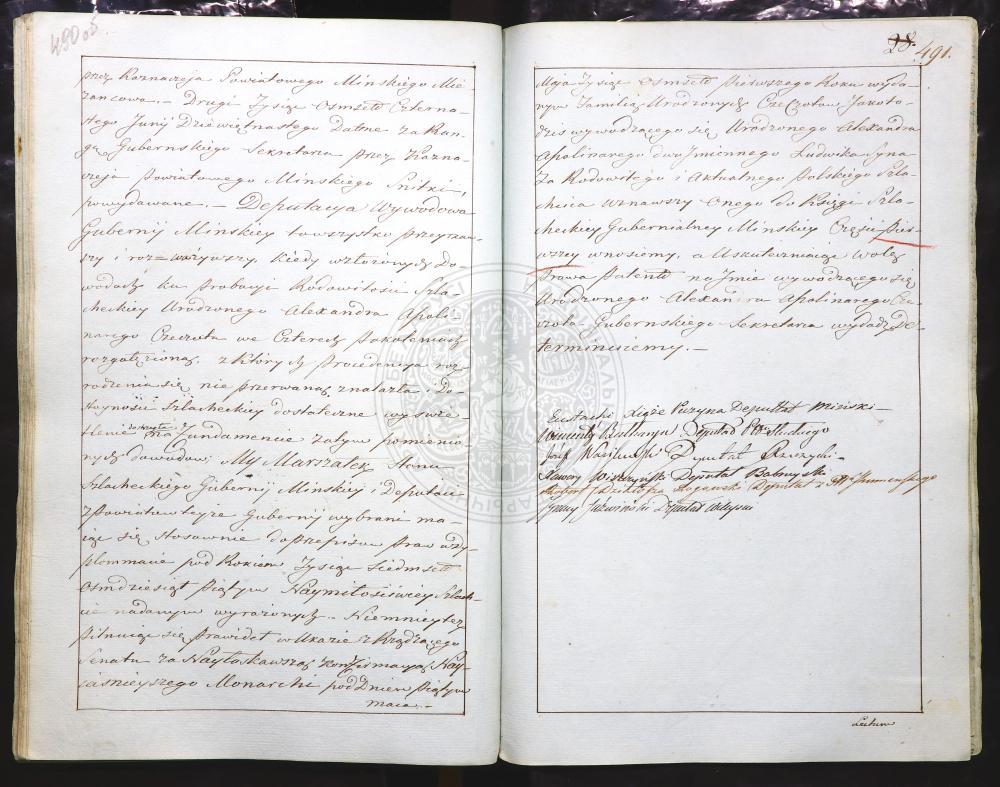 490 об
przez Kaznaczeja Powiatowego Mińskiego Mie-
zancowa. – Drugi Tysiąc Osmset Czterna-
stego Junij Dziewiętnastego Datne za Ran-
gę Gubernskiego Sekretarza przez Kazna-
czeja Powiatowego Mińskiego Snitki,
powydawane. – Deputacya Wywodowa
Gubernij Mińskiey towszystko przeyrzaw-
szy i roz=ważywszy, kiedy wzłożonych Do-
wodach ku probacyi Rodowitości Szla-
checkiey Urodzonego Alexandra Apoli-
narego Czeczota we Czterech Pokoleniach
rozgałęzioną, z których Procedencya roz-
rodzenia się nie przerwaną znalazła. Do-
stoyności Szlacheckiey dostateczne wyświe-
tlenie na Fundamencie zatym pomienio-
nych dowodow, My Marszałek Stanu
Szlacheckiego Gubernij Mińskiey i Deputaci
z Powiatow teyże Gubernij wybrani ma-
iąc się stosownie do przepisu praw w Dy-
plommacie pod Rokiem Tysiąc Siedmset
Osmdziesiąt Piątym Naymiłościwiey Szlach-
cie nadanym wyrażonych – Niemniey też
pilnuiąc się prawideł w Ukazie z Rządzącego
Senatu za Nayłaskawszą konfirmacyą Nay-
iaśnieyszego Monarchi pod Dniem Piątym
maia. –
28. 491.
Maja Tysiąc Osmset Pierwszego Roku wyda-
nym Familią Urodzonych Czeczotow Jakoto-
dziś wywodzącego się Urodzonego Alexandra
Apolinarego dwuJmiennego Ludwika Syna
Za Rodowitego i Aktualnego Polskiego Szla-
chcica uznawszy Onego do Księgi Szla-
checkiey Gubernialney Mińskiey Części Pier-
wszey wnosiemy, a Uskuteczniaiąc wolę
Prawa Patent na Jmie wywodzącego się
Urodzonego Alexandra Apolinarego Cze-
czota Gubernskiego Sekretarza wydadź De-
terminuiemy. –
Eustachi Xiąże Puzyna Deputtat Miński –
Wincenty Bułharyn Deputat Ptu Słuckiego
Józef Deputat Rzeczycki
Xawery Deputat Bobruyski
Deputat z Ptu Ihumenskiego
Ignacy Deputat
Lectum